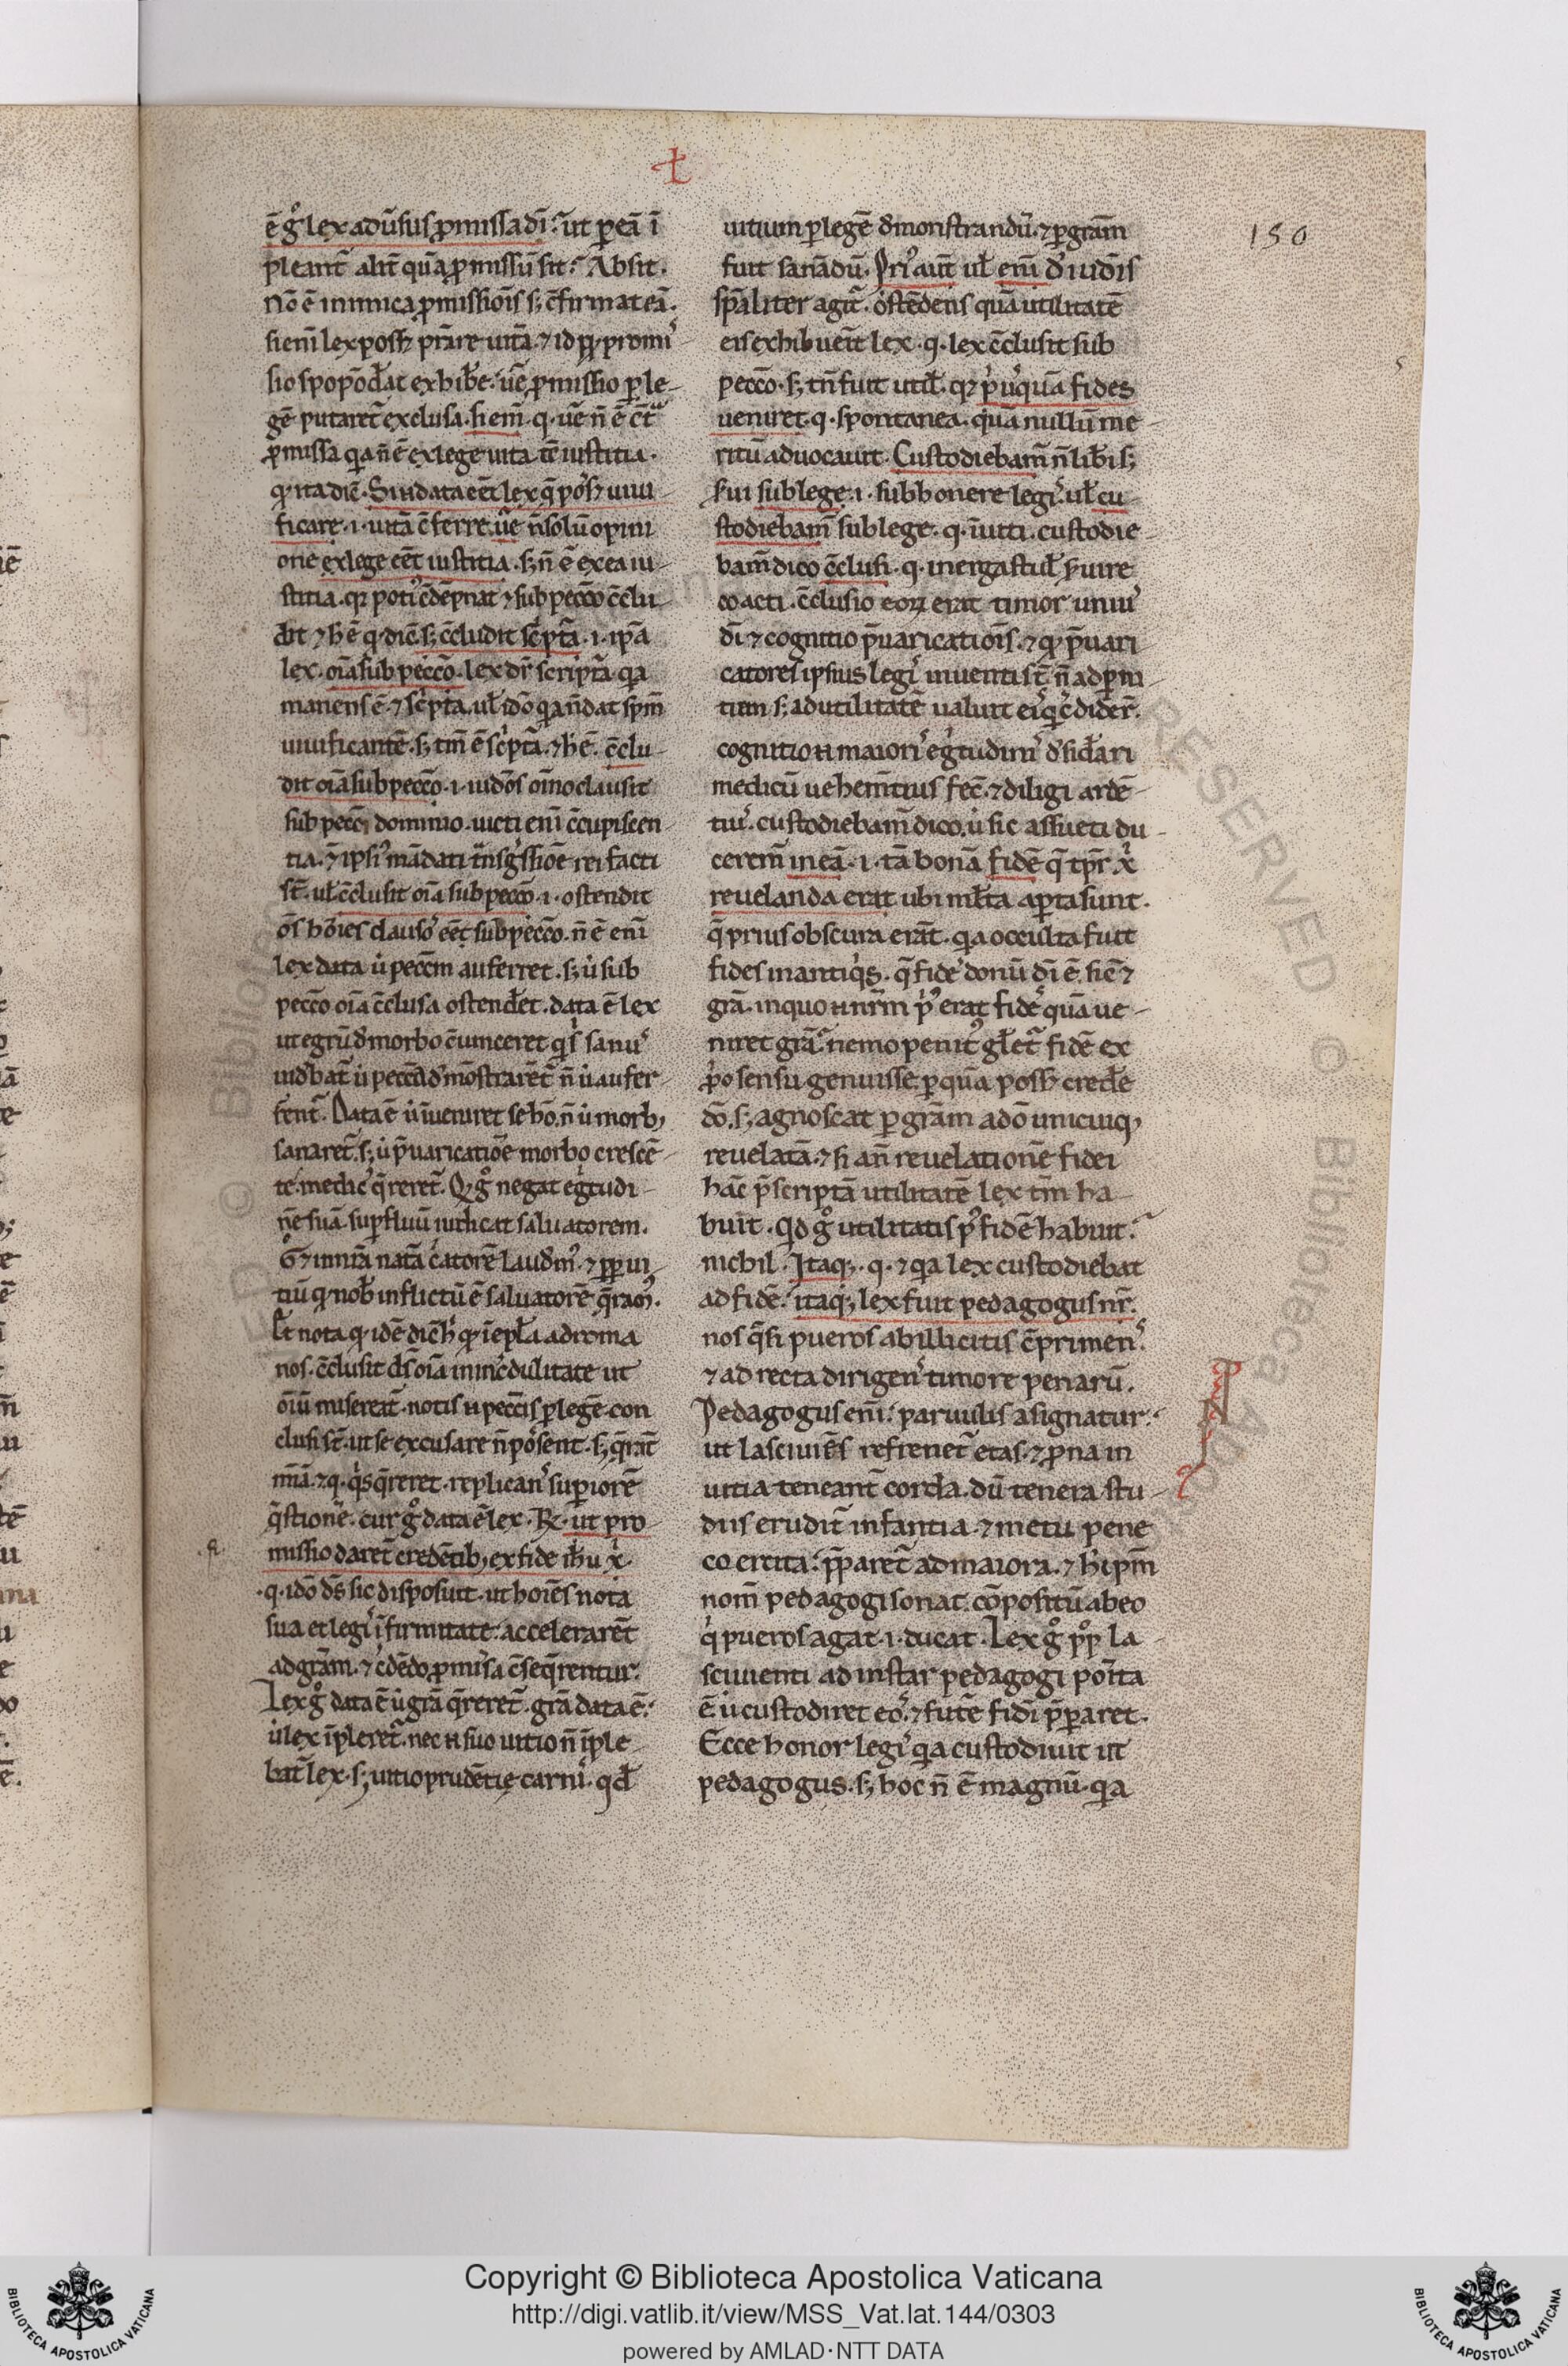 ē gͦ lex aduūsus ꝓmissa dī. ut ꝑ eā ī
pleant̄ alit̄ quā ꝓmissū sit. Absit.
Nō ē inimica ꝓmissiōis s; ōfirmat eā.
si enī lex posset p̄stare uitā ⁊ id qđ promi
sio spopōđat exhibe. uē ꝓmissio ꝑ le
gē putaret̄ exclusa. si enī. q. uē n̄ ē
ꝓmissa q̇a n̄ ē ex lege uita tē iustitia.
qđ ita diē. Si data eēt lex q̄ poss; uiui
ficare. i. uitā ōferre. uē n̄ solū opini
one ex lege eēt iustitia. s; n̄ ē ex ea iu
stitia. q̇ poti᾽ ōdēpnat ⁊ sub peccō ōclu
dit ⁊ h̄ ē q diē s; ōcludit sc̄pta. i. ip̄a
lex. oīa sub peccō. lex dr̄ scripta q̇a
manens ē ⁊ sc̄pta. ul̄ idō q̇a n̄ dat sp̄m
uiuificantē. s; tm̄ ē sc̄pta. ⁊ h̄ ē. ōclu
dit oīa sub peccō. i. iudōs oīno clausit
sub peccī dominio. uicti enī ōcupiscen
tia. ⁊ ipsi᾽ mādati t̄nsg̈ssiōe rei facti
st̄. ul̄ ōclusit oīa sub peccō. i. ostendit
ōs hōies clausos eēt sub peccō. n̄ ē enī
lex data u̇ peccm̄ auferret. s; u̇ sub
peccō oīa ōclusa ostenđet. data ē lex
ut egrū đ morbo ōuinceret qs sanu᾽
uiđbat̄ u̇ peccā đmōstraret̄ n̄ u̇ aufer
rent̄. Data ē u̇ īueniret se hō. n̄ u̇ morb;
sanaret̄. s; u̇ p̄uaricatiōe morbo crescē
te. medic᾽ q̄reret̄. Q gͦ negat eg̈tudi
nē suā. supfluū iudicat saluatorem.
Gͦ ⁊ in nr̄a natā c̄atorē laudm᾽. ⁊ pp ui
tiū q nob̄ inflictū ē saluatorē q̄ram᾽.
Et nota qđ idē diē h̄ qđ ī epl̄a ad roma
nos. ōclusit dś oīa in inc̄dulitate ut
oīū misereat̄. notis n peccis ꝑ legē con
clusi st̄. ut se excusare n̄ possent. s; q̄rāt
miā. ⁊ q. qs q̄reret. replican᾽ superiorē
q̄stionē. cur gͦ data ē lex. R̄. ut pro
missio daret̄ credētib; ex fide ih̄u x̄.
.q. idō dś sic disposuit. ut hoīes nota
sua et legi᾽ īfirmitate. accelerarēt
ad grām. ⁊ c̄dēdo ꝓmissa ōseq̄rentur.
Lex gͦ data ē u̇ grā q̄reret̄. grā data ē.
u̇ lex īpleret̄. nec n suo uitio n̄ īple
bat̄ lex. s; uitio prudētię carni᾽. qđ
150
uitium ꝑ legē đmonstrandū. ⁊ ꝑ grām̄
fuit sanādū. Pri᾽ aut̄ ul̄ enī đ iudīs
sp̄aliter agit̄. ostēdens quā utilitatē
eis exhibuerit lex. q. lex ōclusit sub
peccō. s; tn̄ fuit util̄. q̇ p̄u̇quā fides
ueniret. q. spontanea. quā nullū me
ritū aduocauit. Custodiebam̄ n̄ lib̄i s;
sui sub lege. i. sub honere legi᾽. ul̄ cu
stodiebam̄ sub lege. q. īuiti. custodie
bam̄ dico ōclusi. q. in ergastul̄ s̄uire
coacti. ōclusio eoꝝ erat timor uniu᾽
dī ⁊ cognitio p̄uaricatiōis. ⁊ qđ p̄uari
catores ipsius legi᾽ inuenti st̄ n̄ ad ꝑni
tiem s; ad utilitatē ualuit ei᾽ q c̄dider̄.
cognitio n maiori᾽ eg̈tudini᾽ đsiđari
medicū uehem̄tius fec̄. ⁊ diligi ardē
tiu᾽. custodiebam̄ dico. u̇ sic assueti du
cerem̄ in eā. i. tā bonā fidē q̄ tp̄r x̄
reuelanda erat ubi ml̄ta aꝑta sunt.
q̄ prius obscura erāt. q̇a occulta fuit
fides in antiq̇s. q̄ fide᾽ donū dī ē. sic̄ ⁊
grā. in quo n nr̄m p̄᾽ erat fide᾽ quā ue
niret grā. nemo penit᾽ gl̄et̄ fidē ex
p̄o sensu genuisse. ꝑ quā posset cređe
dō. s; agnoscat ꝑ grām a dō unicuiq;
reuelatā. ⁊ si an̄ reuelationē fidei
hāc p̄scriptā utilitatē lex tm̄ ha
buit. qđ gͦ utilitatis p᾽ fidē habuit.
nichil. Itaq;. q. ⁊ q̇a lex custodiebat
ad fidē. itaq; lex fuit pedagogus nr̄.
nos q̄si pueros ab illicitis ōprimen᾽.
⁊ ad recta dirigen᾽ timore penarū.
Pedagogus enī. paruulis asignatur.
ut lasciuiēs refrenet̄ etas. ⁊ ꝓna in
uitia teneant̄ corda. dū tenera stu
diis erudit̄ infantia. ⁊ metu pene
coercita. p̄ꝑaret̄ ad maiora. ⁊ h̄ ip̄m
nom̄ pedagogi sonat. cōpositū ab eo
q̇ pueros agat. i. ducat. Lex gͦ pp̄lo la
sciuienti ad instar pedagogi posita
ē u̇ custodiret eos. ⁊ futē fidī p̄ꝑaret.
Ecce honor legi᾽ q̇a custodiuit ut
pedagogus. s; hoc n̄ ē magnū. q̇a
Copyright © Biblioteca Apostolica Vaticana
http://digi.vatlib.it/view/MSS_Vat.lat.144/0303
powered by AMLAD·NTT DATA